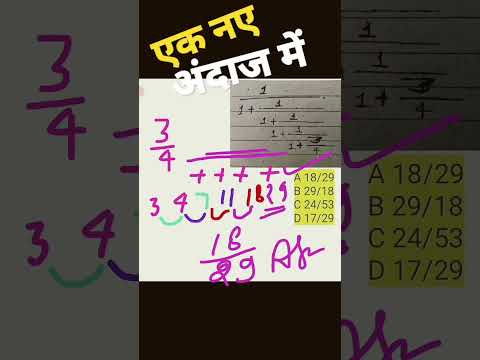 एक नए
अंदाज में
3/4
3/4
1
1 + 1
1 + 1
1 + 1
1 + 3/4
+ + + +
3 4 7 11 18 29
3 4
18/29 Ans
A 18/29
B 29/18
C 24/53
D 17/29
A 18/29
B 29/18
C 24/53
D 17/29